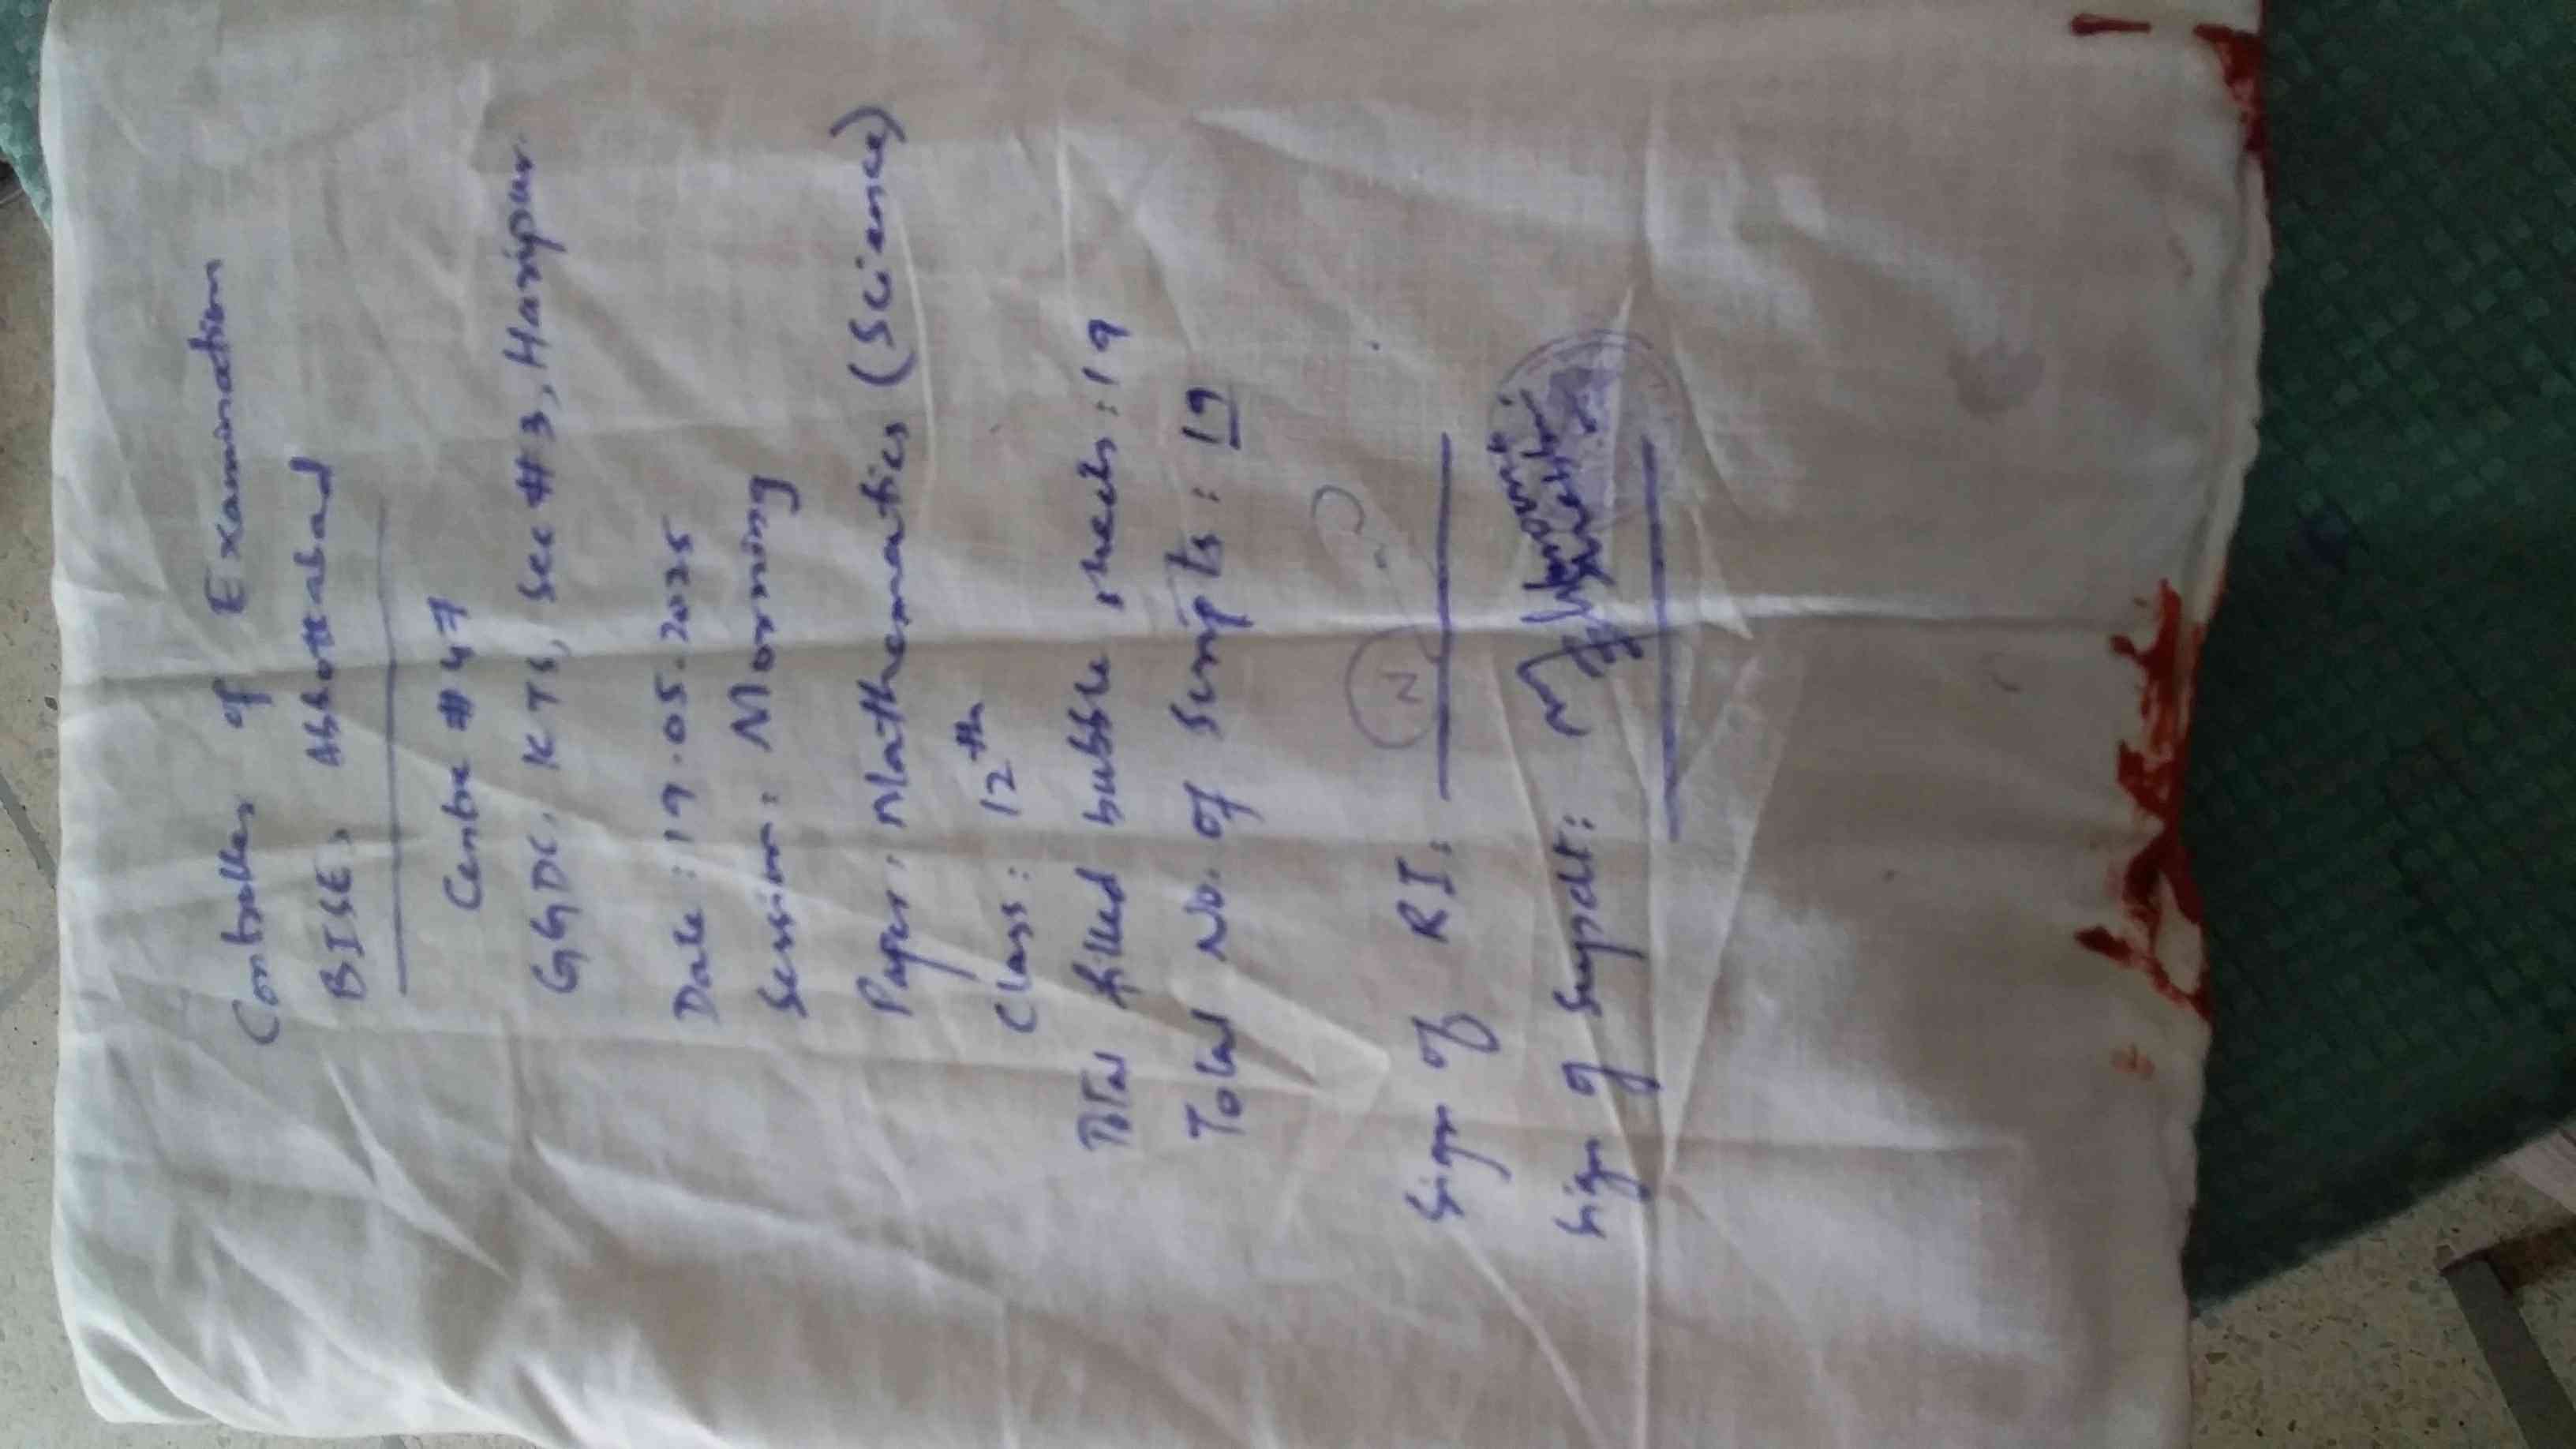 Controller of Examination
BISE, Abbottabad
Centre # 47
GGDC, KTS, Sec # 3, Haripur
Date: 19.05.2025
Session: Morning
Paper: Mathematics (Science)
Class: 12th
Total filled bubble sheets: 19
Total No. of Scripts: 19
Sign of RI:
Sign of Supdt: